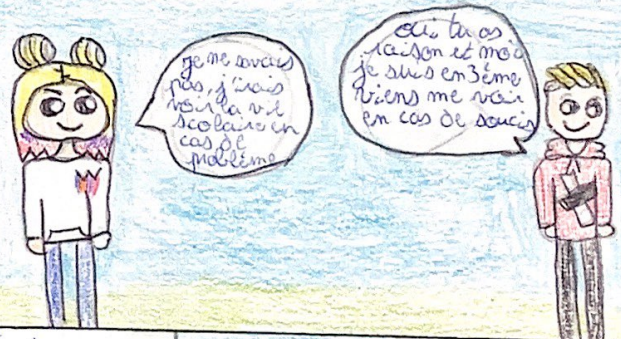 je ne savais
pas, j'irais
voir la vie
scolaire en
cas de
problème
oui tu as
raison et moi
je suis en 3ème
viens me voir
en cas de soucis